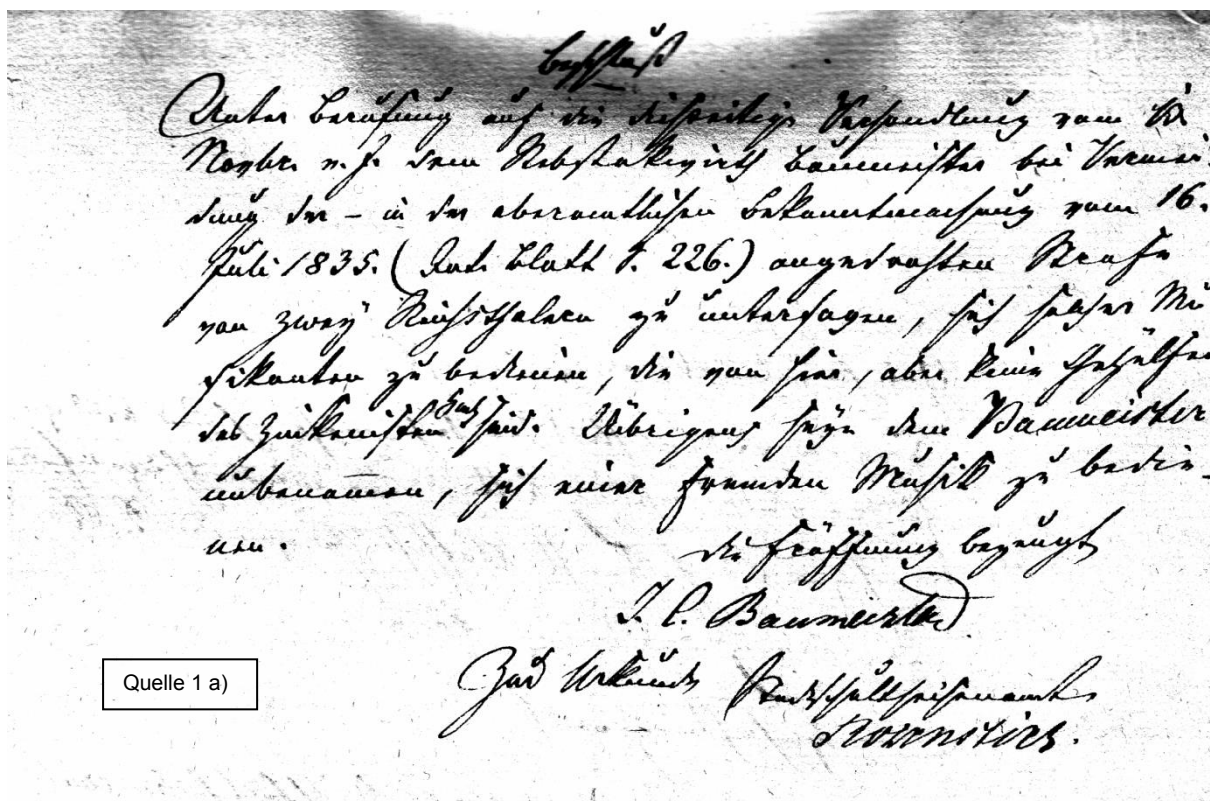 Beschluß
Unter Berufung auf die diesseitige Verhandlung vom
Novbr. v. J. dem Rebstokwirth Baumeister bei Vermei-
dung der – in der oberamtlichen Bekanntmachung vom 16.
Juli 1835. (Int. Blatt S. 226.) angedrohten Strafe
von zwey Reichsthalern zu untersagen, sich solcher Mu
sikanten zu bedienen, die von hier, aber keine Gehülfen
des Zinkenisten sind. Uibrigens seye dem Baumeister
unbenommen, sich einer fremden Musik zu bedie-
nen.
die Eröffnung bezeugt
J. C. Baumeister
Zur Urkunde Stadtschultheisenamt
Quelle 1 a)